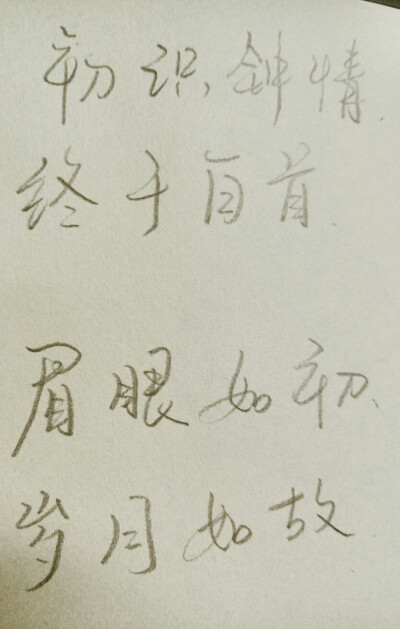 初识钟情.
终于白首.
眉眼如初、
岁月如故